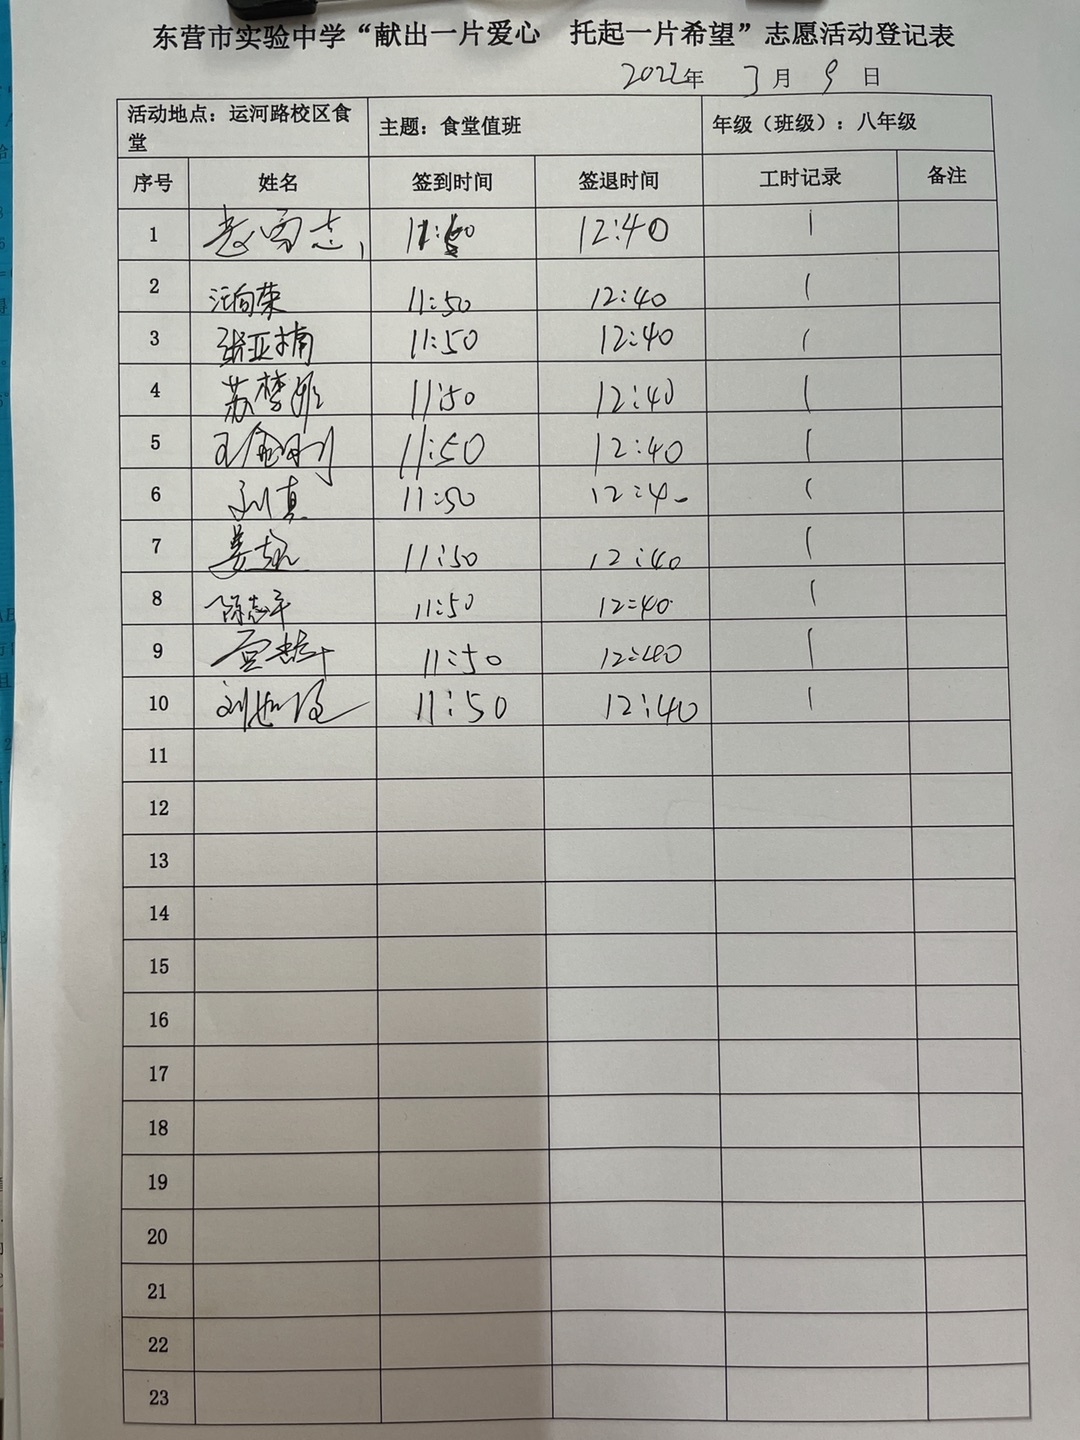 东营市实验中学“献出一片爱心 托起一片希望”志愿活动登记表
2022年 3月 9日
活动地点：运河路校区食堂 主题：食堂值班 年级（班级）：八年级
序号 姓名 签到时间 签退时间 工时记录 备注
1 11:50 12:40 1
2 汪向荣 11:50 12:40 1
3 张亚楠 11:50 12:40 1
4 苏梦雅 11:50 12:40 1
5 王金刚 11:50 12:40 1
6 刘真 11:50 12:40 1
7 11:50 12:40 1
8 陈志平 11:50 12:40 1
9 11:50 12:40 1
10 11:50 12:40 1
11
12
13
14
15
16
17
18
19
20
21
22
23